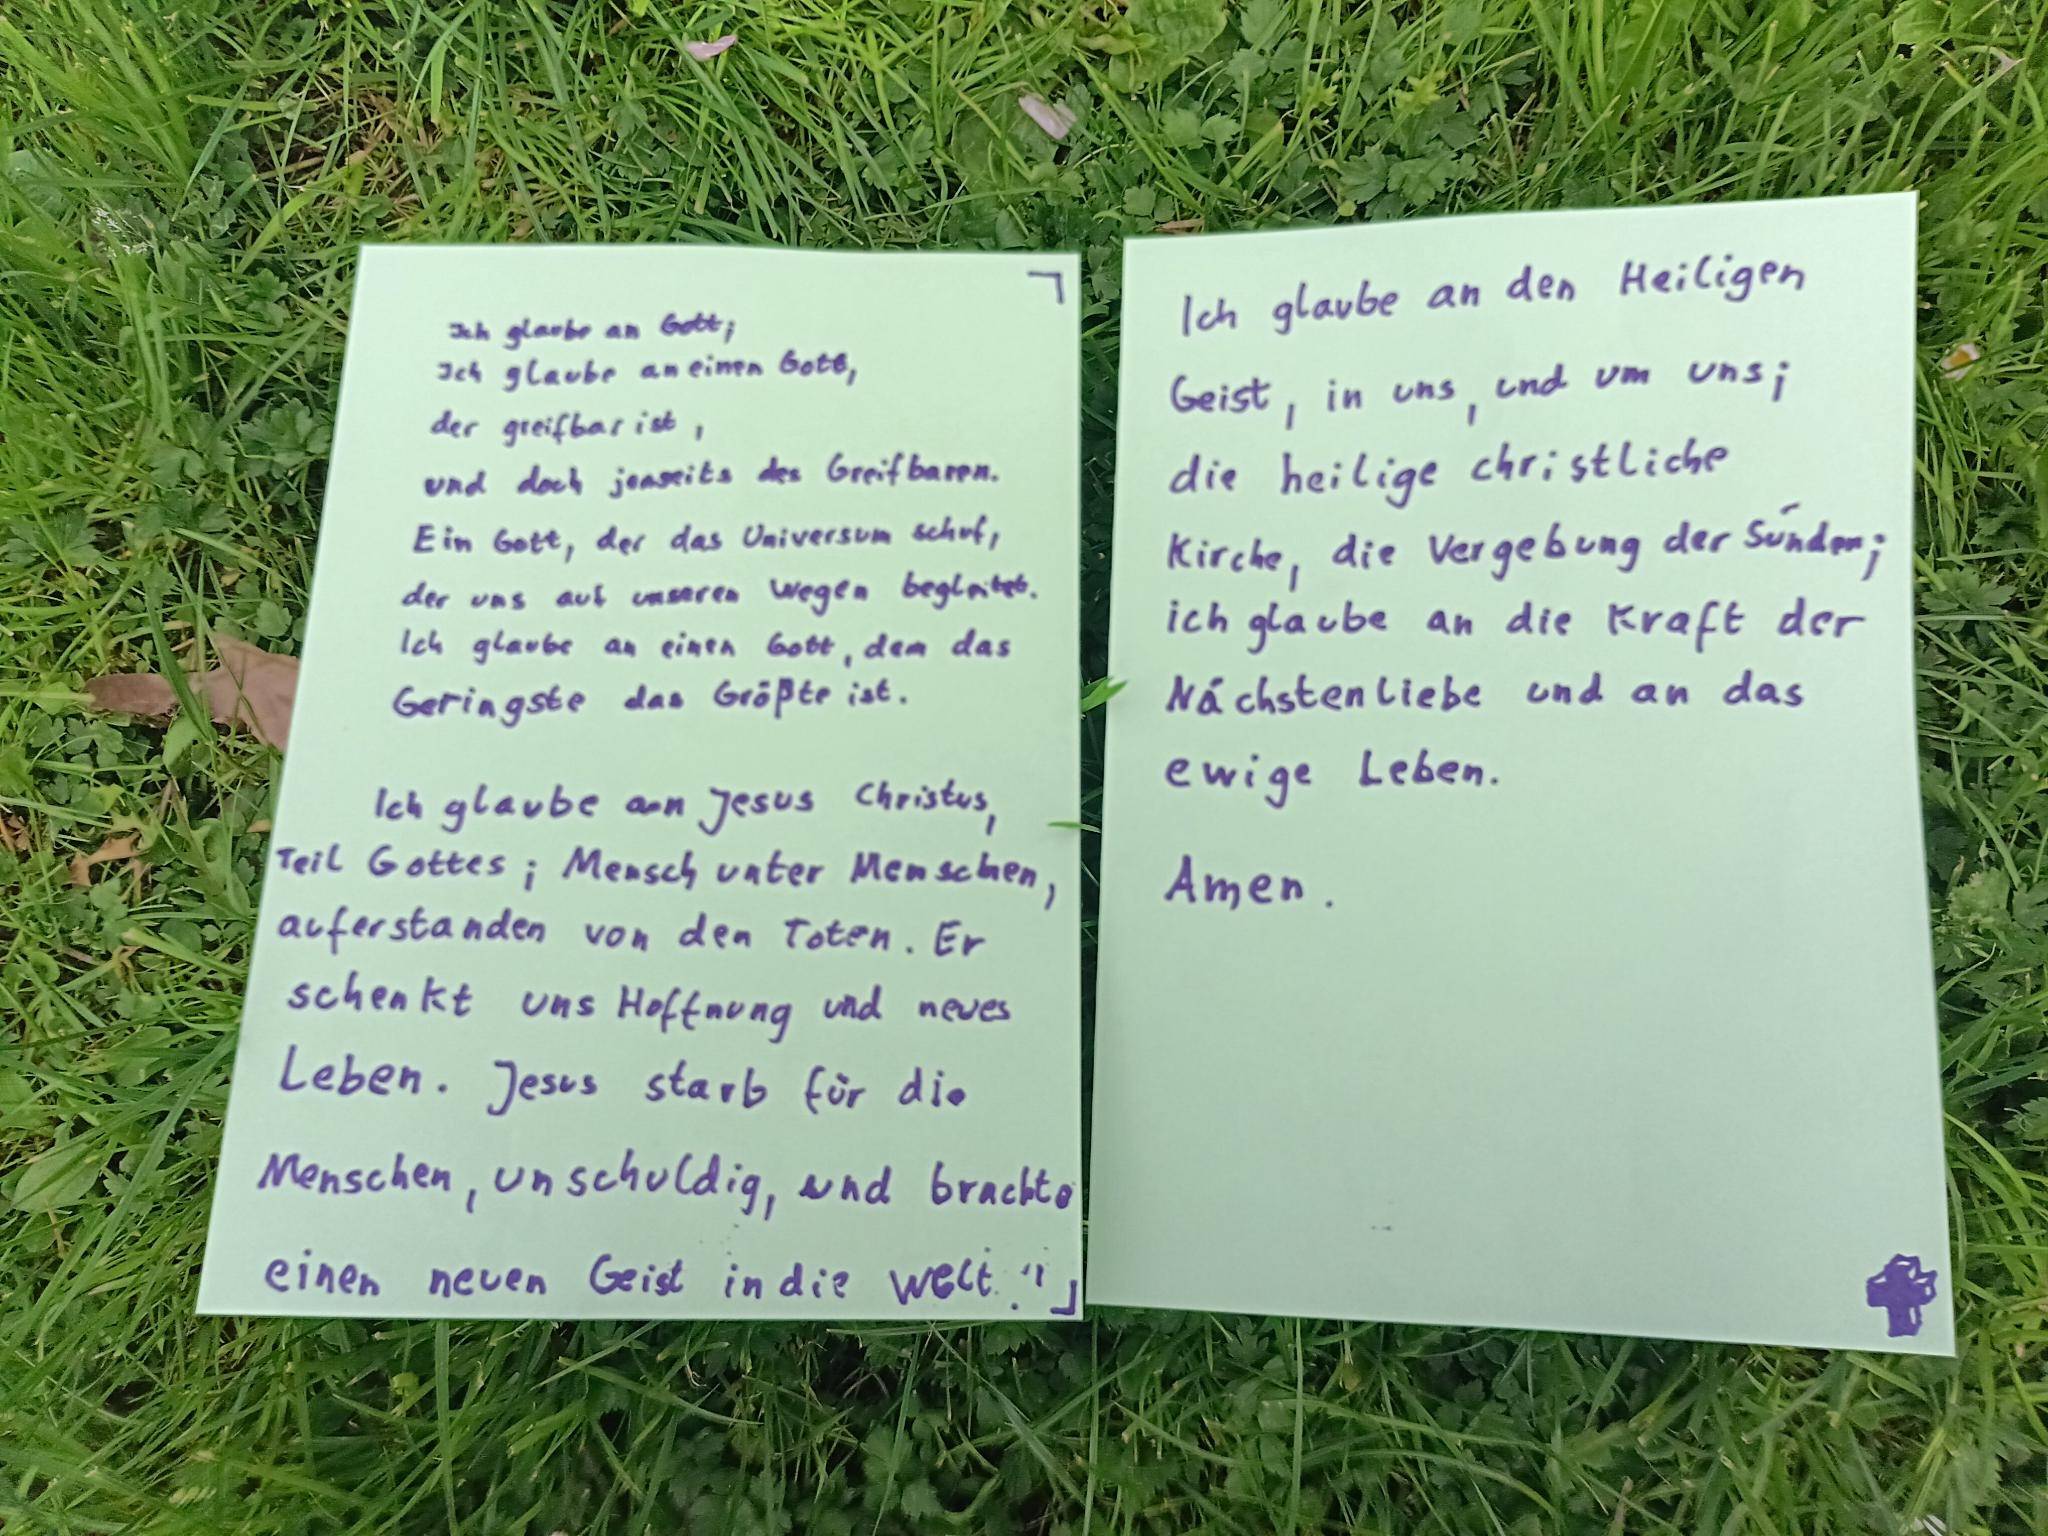 Ich glaube an Gott;
Ich glaube an einen Gott,
der greifbar ist,
und doch jenseits des Greifbaren.
Ein Gott, der das Universum schuf,
der uns auf unseren Wegen begleitet.
Ich glaube an einen Gott, dem das
Geringste das Größte ist.
Ich glaube an Jesus Christus,
Teil Gottes; Mensch unter Menschen,
auferstanden von den Toten. Er
schenkt uns Hoffnung und neues
Leben. Jesus starb für die
Menschen, unschuldig, und brachte
einen neuen Geist in die Welt.
Ich glaube an den Heiligen
Geist, in uns, und um uns;
die heilige christliche
Kirche, die Vergebung der Sünden;
ich glaube an die Kraft der
Nächstenliebe und an das
ewige Leben.
Amen.